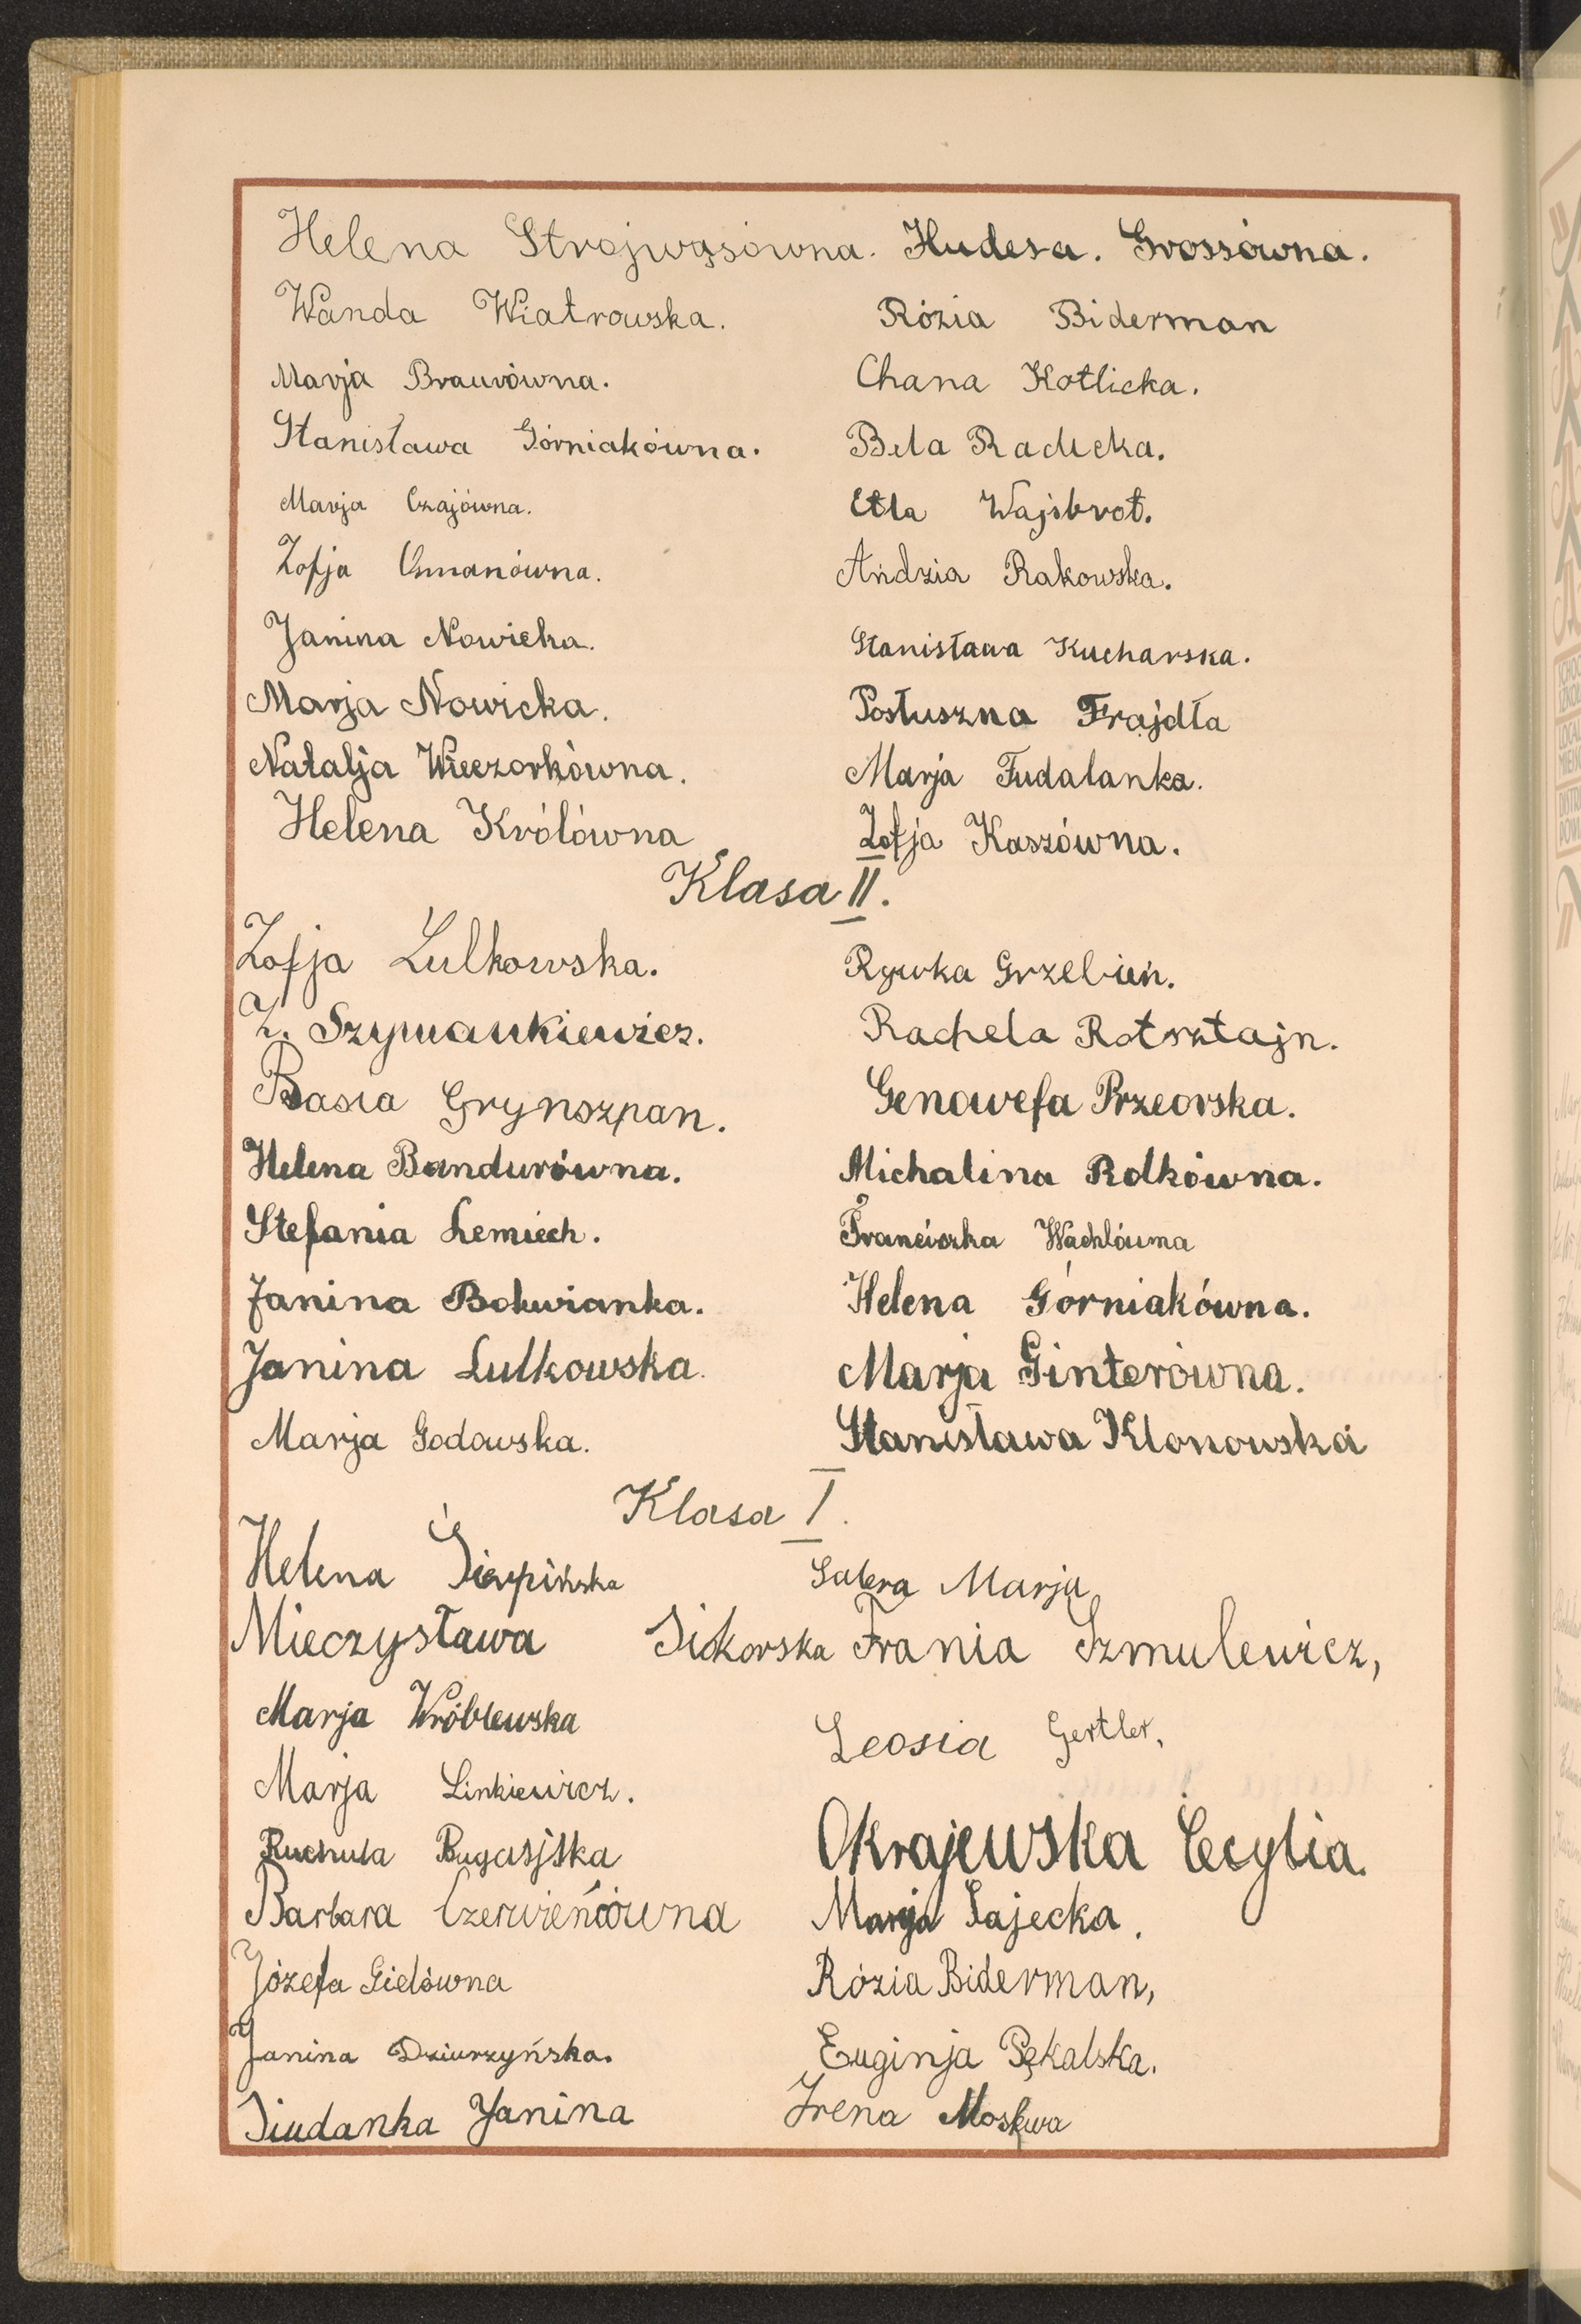 Helena Strojwąsówna. Hudesa. Grossówna.
Wanda Wiatrowska. Rózia Biderman
Marja Braurówna. Chana Kotlicka.
Stanisława Górniakówna. Bela Radlcka.
Marja Czajówna. Etla Wajsbrot.
Zofja Osmanówna. Andzia Rakowska.
Janina Nowicka. Stanisława Kucharska.
Marja Nowicka. Posłuszna Frajdla
Natalja Wieczorkówna. Marja Fudalanka.
Helena Królówna Zofja Kaszówna.
Klasa II.
Zofja Lulkowska. Rywka Grzebień.
Z. Szymankiewicz. Rachela Rotsztajn.
Basia Grynszpan. Genowefa Przeorska.
Helena Bandurówna. Michalina Rolkówna.
Stefania Lemiech. Franciszka Wachlówna
Janina Bokwianka. Helena Górniakówna.
Janina Lulkowska. Marja Ginterówna.
Marja Godowska. Stanisława Klonowska
Klasa I.
Helena Sierpińska Salera Marja
Mieczysława Sikorska Frania Szmulewicz,
Marja Wróblewska Leosia Gertler,
Marja Linkiewicz.
Ruchula Bugasjska Okrajewska Cecylia.
Barbara Czerwieńcówna Marja Sajecka.
Józefa Gielówna Rózia Biderman,
Janina Dziurzyńska. Euginja Pękalska.
Siudanka Janina Irena Moskwa